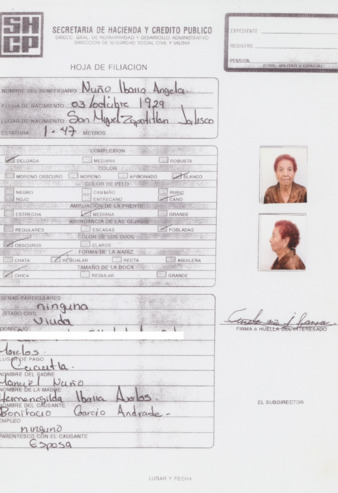 SHCP
SECRETARIA DE HACIENDA Y CREDITO PUBLICO
DIRECCION DE SEGURIDAD SOCIAL CIVIL Y MILITAR
HOJA DE FILIACION
EXPEDIENTE
REGISTRO
PENSION
NOMBRE DEL BENEFICIARIO Nuño Ibarra Angela
FECHA DE NACIMIENTO 03/octubre 1929
LUGAR DE NACIMIENTO San Miguel Zapotitlan Jalisco
ESTATURA 1-47 METROS
COMPLEXION
DELGADA MEDIANA ROBUSTA
COLOR
MORENO OBSCURO MORENO APIÑONADO BLANCO
COLOR DE PELO
NEGRO CASTAÑO RUBIO
ROJO ENTRECANO CANO
AMPLITUD DE LA FRENTE
ESTRECHA MEDIANA GRANDE
REGULARES ESCASAS POBLADAS
COLOR DE LOS OJOS
OBSCUROS CLAROS
FORMA DE LA NARIZ
CHATA REGULAR RECTA AGUILEÑA
TAMAÑO DE LA BOCA
CHICA REGULAR GRANDE
SEÑAS PARTICULARES
ninguna
ESTADO CIVIL
Viuda
Morelos.
LUGAR DE PAGO
Cuautla
NOMBRE DEL PADRE
Manuel Nuño
NOMBRE DE LA MADRE
Hermenegilda Ibarra Avalos.
NOMBRE DEL CAUSANTE
Bonifacio Garcia Andrade.
EMPLEO
ninguno
PARENTESCO CON EL CAUSANTE
Esposa
FIRMA O HUELLA DEL INTERESADO
EL SUBDIRECTOR
LUGAR Y FECHA